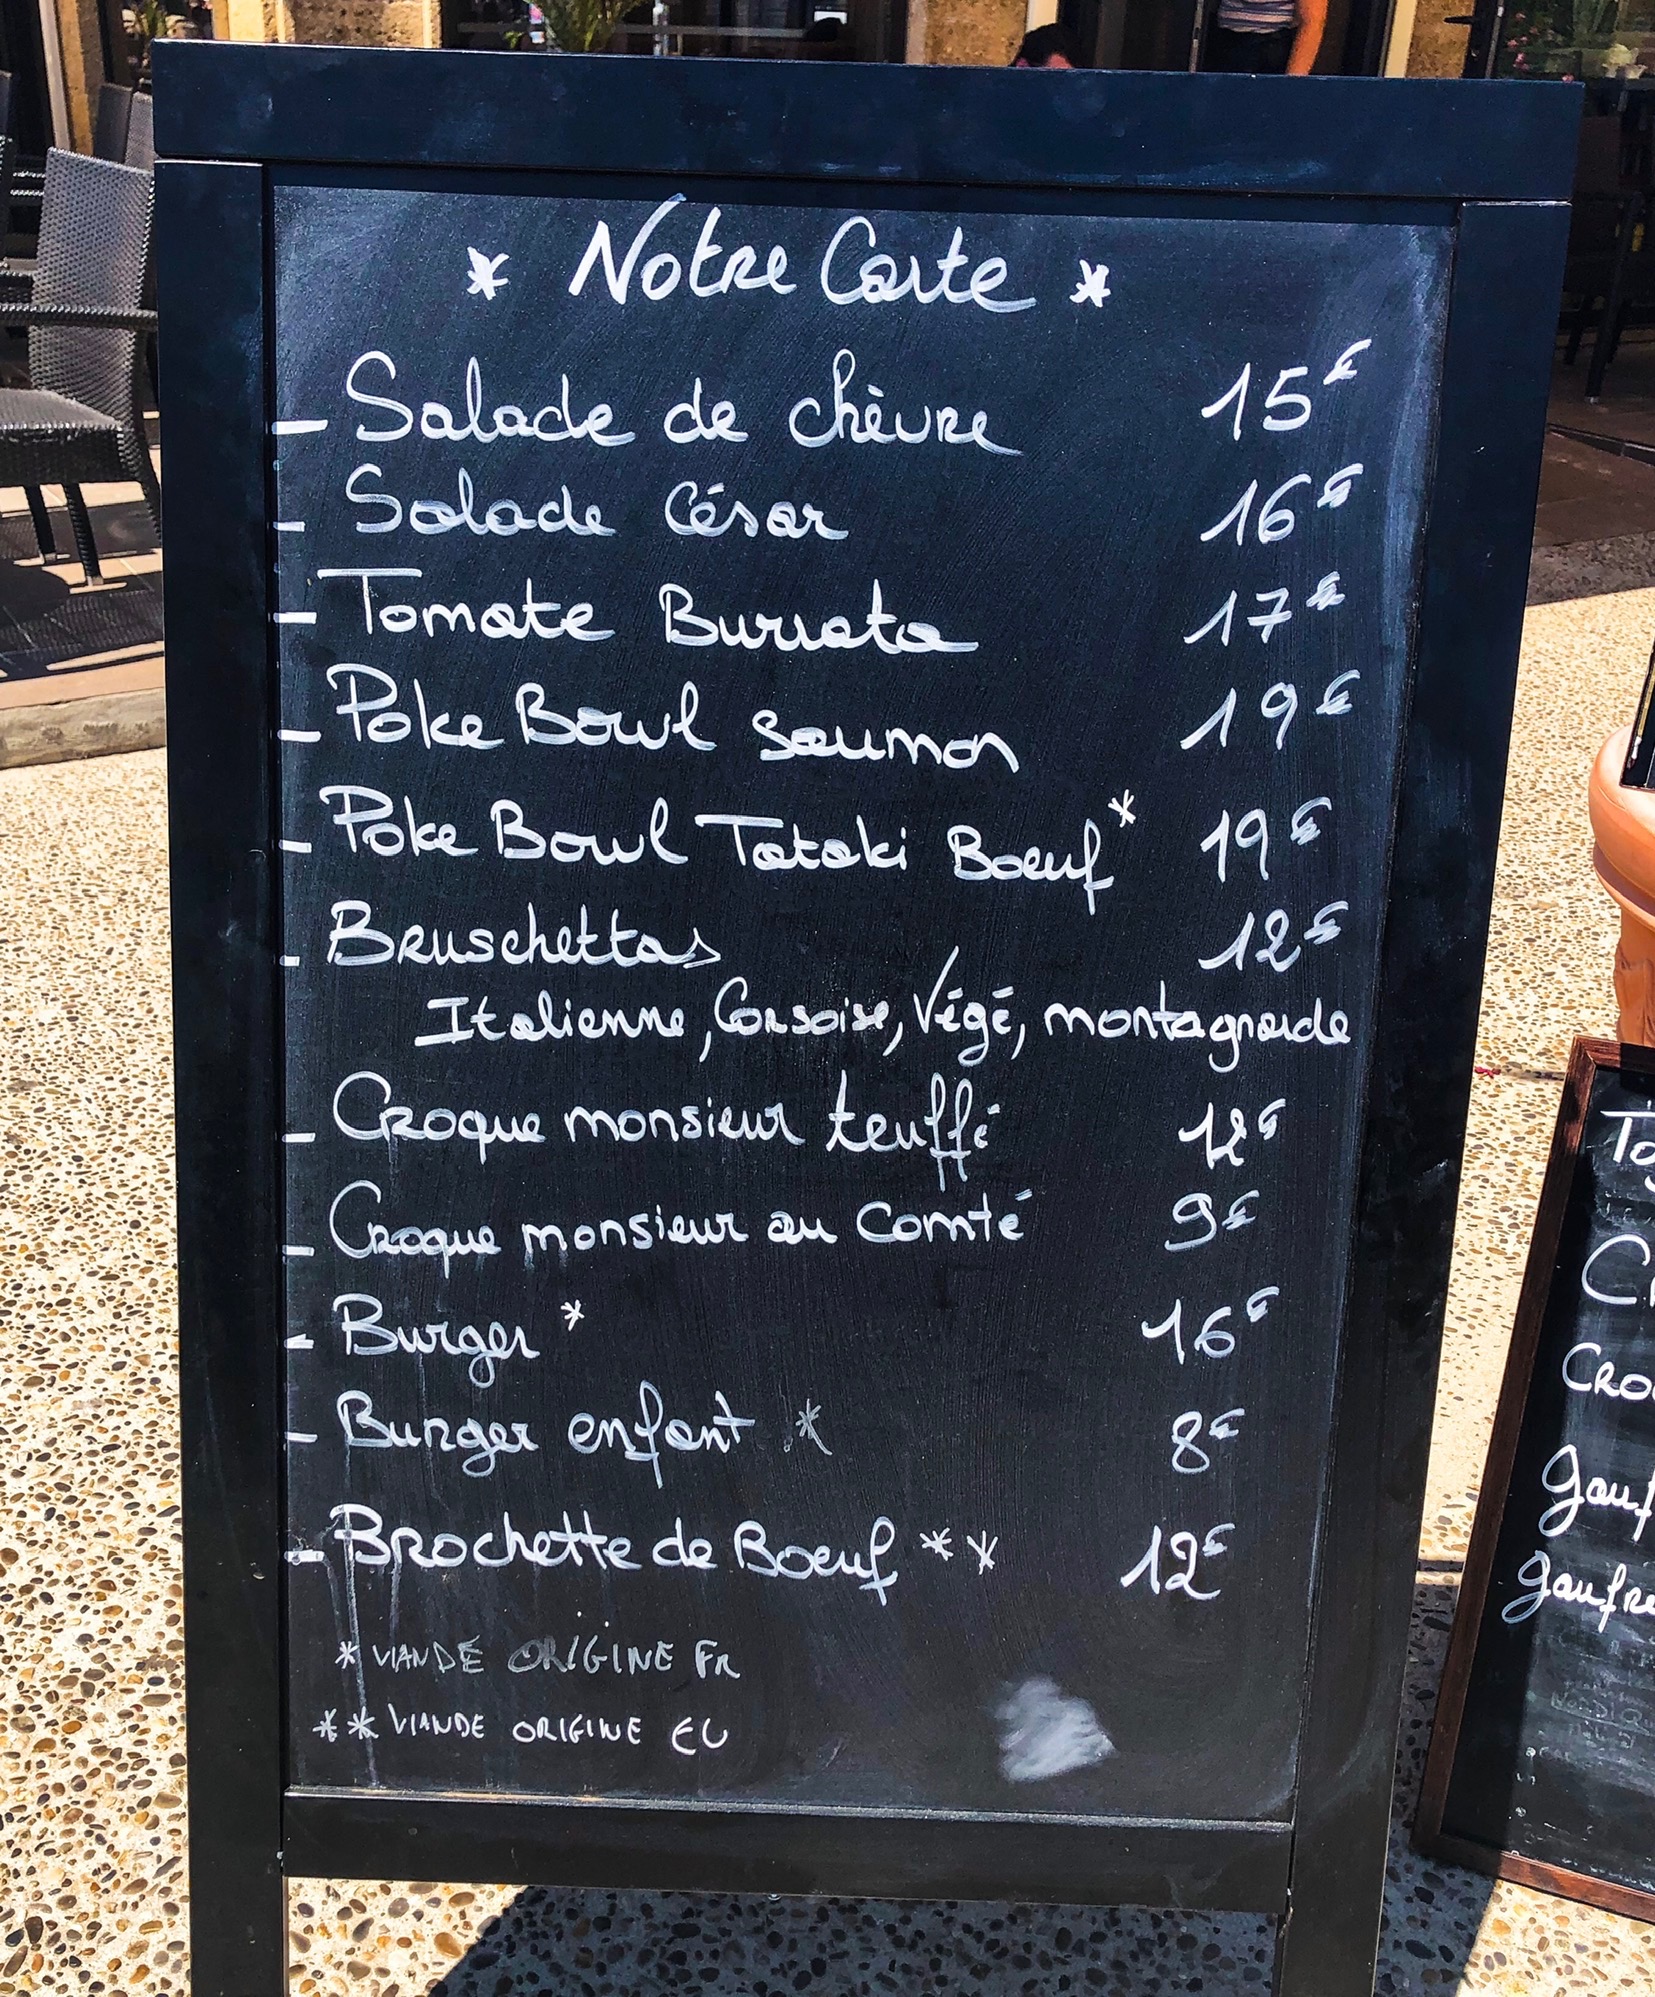 * Notre Carte *
- Salade de chèvre 15€
- Salade César 16€
- Tomate Burrata 17€
- Poke Bowl saumon 19€
- Poke Bowl Tataki Boeuf* 19€
- Bruschettas 12€
Italienne, Corsoise, Végé, montagnarde
- Croque monsieur teuffé 12€
- Croque monsieur au Comté 9€
- Burger * 16€
- Burger enfant * 8€
- Brochette de Boeuf ** 12€
* VIANDE ORIGINE FR
** VIANDE ORIGINE EU
To
C
CRO
Gauf
Gaufre